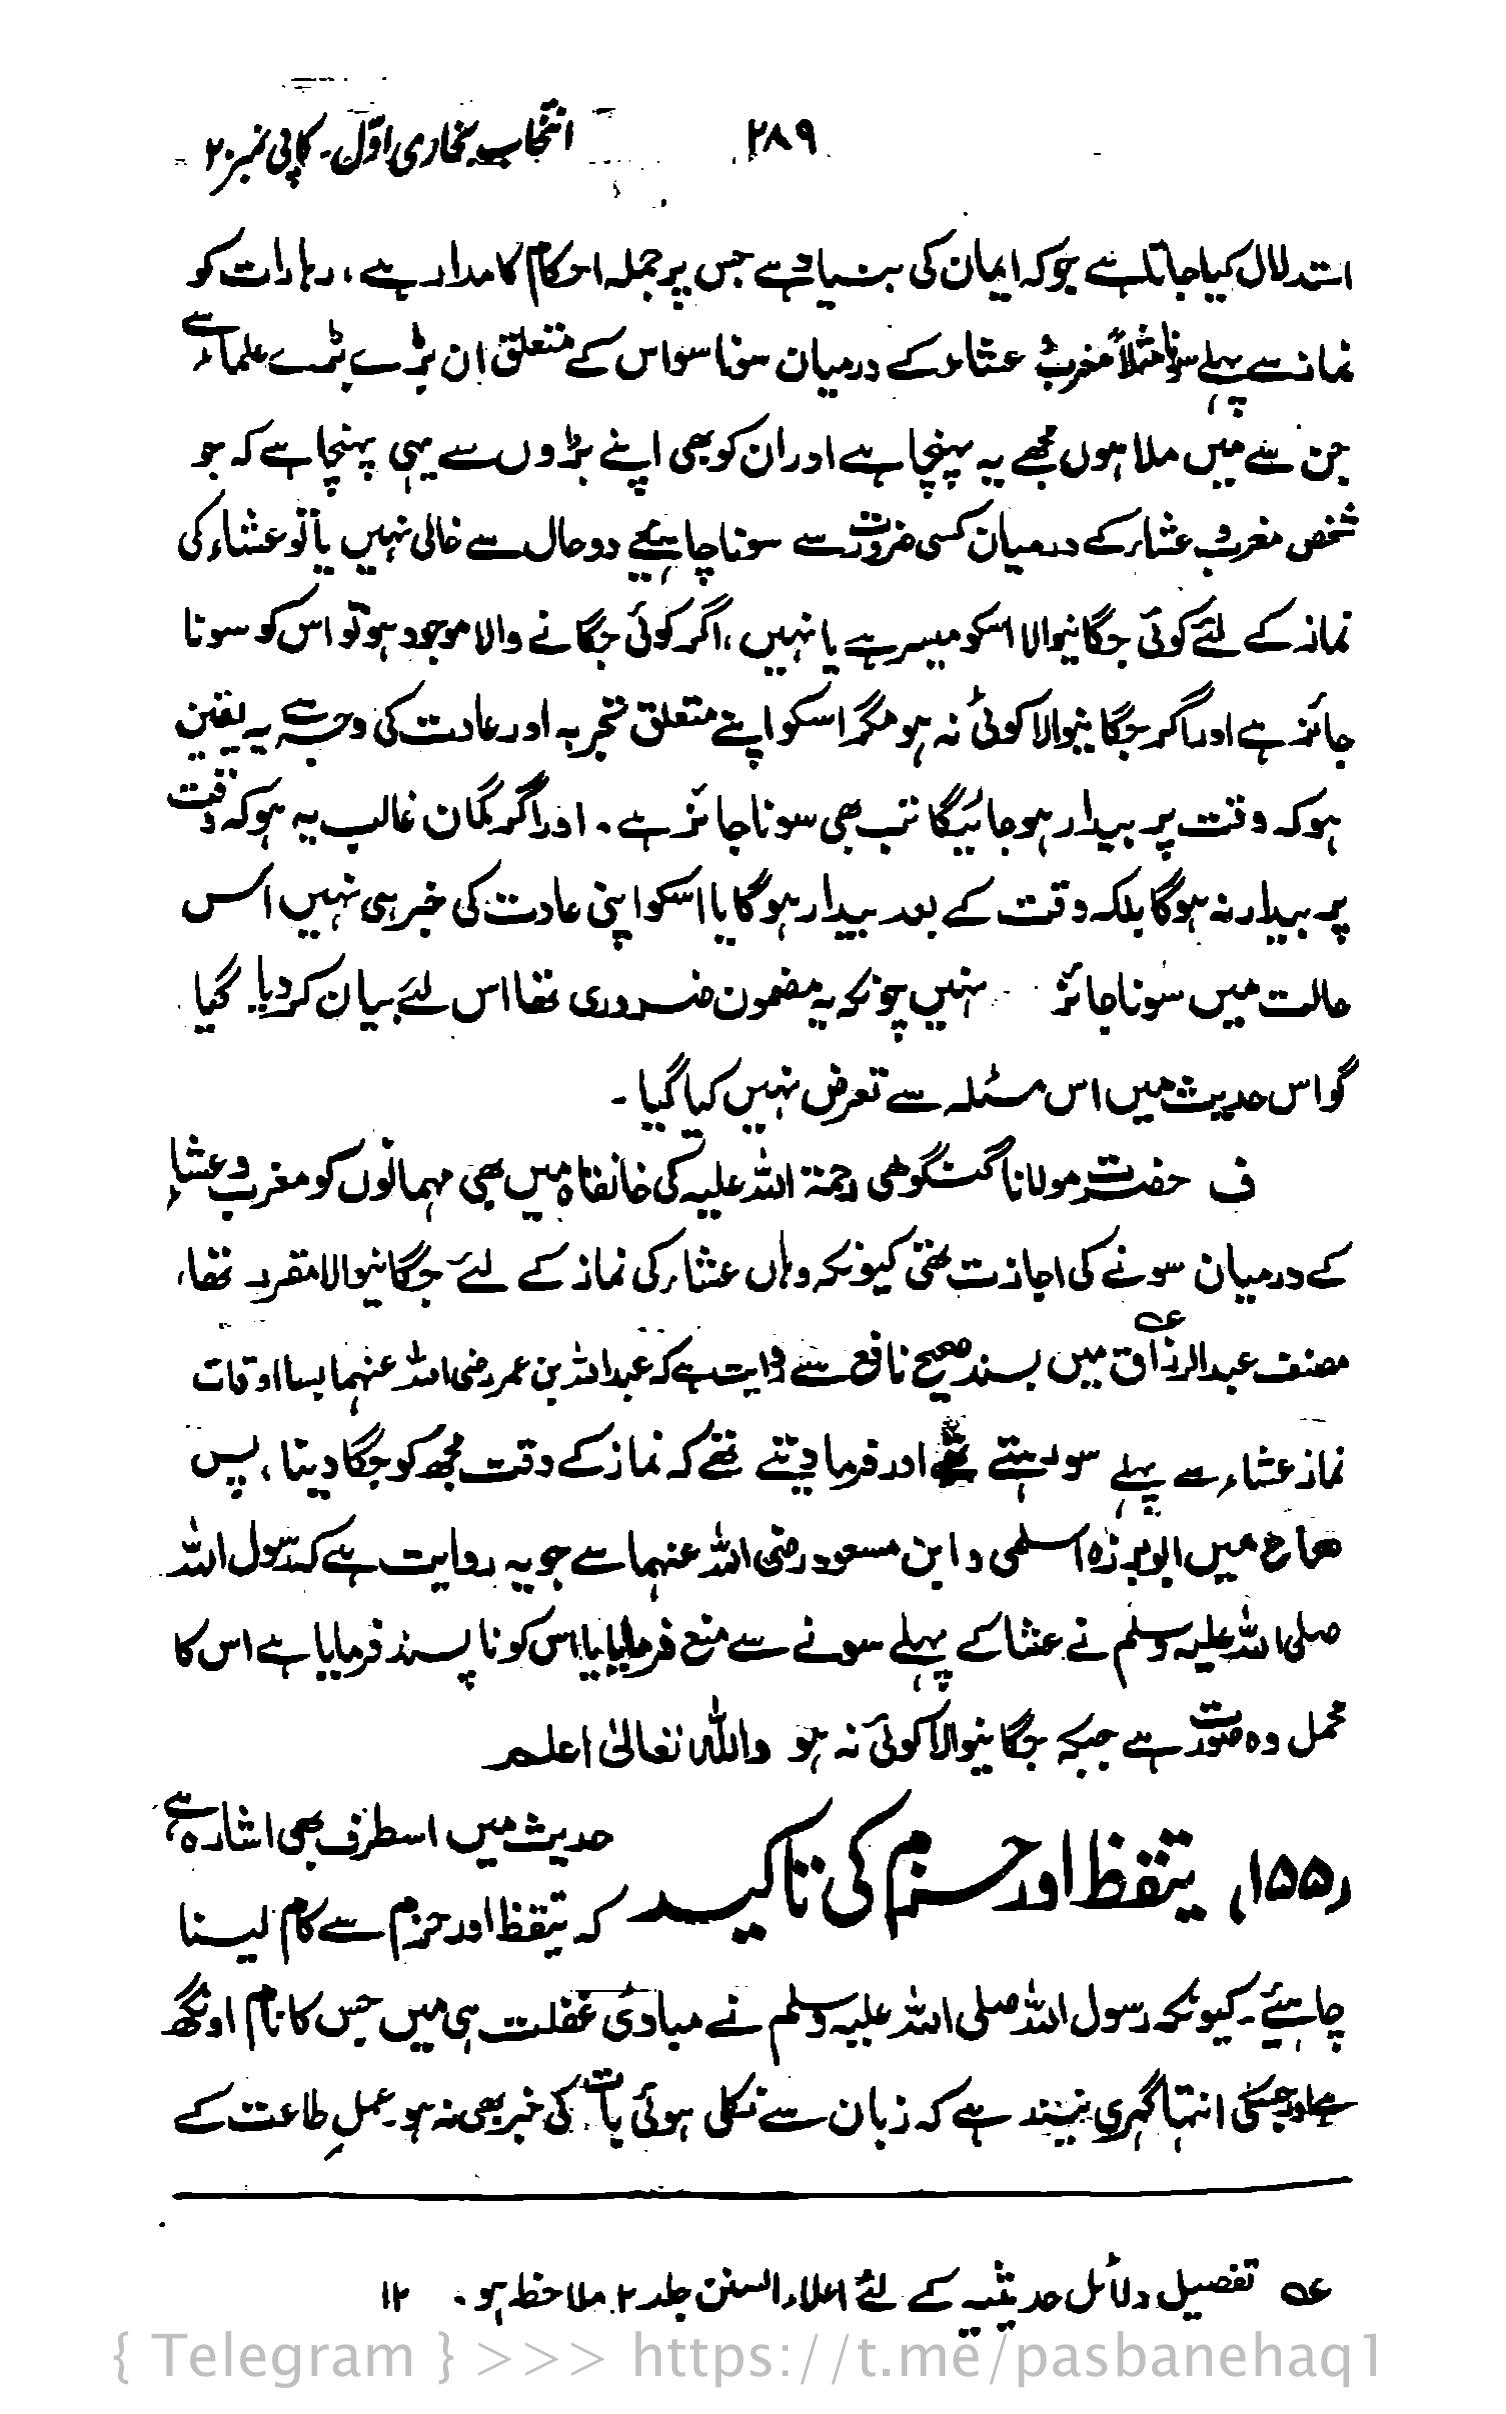 ۲۸۹ انتخاب بخاری اوّل۔ کاپی نمبر ۲۰
استدلال کیا جاتا ہے جو کہ ایمان کی بنیاد ہے جس پر جملہ احکام کا مدار ہے، رہا رات کو
نماز سے پہلے سونا مثلاً مغرب و عشاء کے درمیان سونا سو اس کے متعلق ان بڑے بڑے علماء سے
جن سے میں ملا ہوں مجھے یہ پہنچا ہے اور ان کو بھی اپنے بڑوں سے یہی پہنچا ہے کہ جو
شخص مغرب و عشاء کے درمیان کسی ضرورت سے سونا چاہیے دو حال سے خالی نہیں یا تو عشاء کی
نماز کے لئے کوئی جگانیوالا اسکو میسر ہے یا نہیں، اگر کوئی جگانے والا موجود ہو تو اس کو سونا
جائز ہے اور اگر جگانیوالا کوئی نہ ہو مگر اسکو اپنے متعلق تجربہ اور عادت کی وجہ سے یہ یقین
ہو کہ وقت پر بیدار ہو جائیگا تب بھی سونا جائز ہے۔ اور اگر گمان غالب یہ ہو کہ وقت
پر بیدار نہ ہوگا بلکہ وقت کے بعد بیدار ہوگا یا اسکو اپنی عادت کی خبر ہی نہیں اس
حالت میں سونا جائز نہیں چونکہ یہ مضمون ضروری تھا اس لئے بیان کر دیا گیا
گو اس حدیث میں اس مسئلہ سے تعرض نہیں کیا گیا۔
ف حضرت مولانا گنگوھی رحمۃ اللہ علیہ کی خانقاہ میں بھی مہمانوں کو مغرب و عشاء
کے درمیان سونے کی اجازت تھی کیونکہ وہاں عشاء کی نماز کے لئے جگانیوالا مقرر تھا،
مصنف عبدالرزاق عہ میں بسند صحیح نافع سے روایت ہے کہ عبداللہ بن عمر رضی اللہ عنہما بسا اوقات
نماز عشاء سے پہلے سو رہتے تھے اور فرما دیتے تھے کہ نماز کے وقت مجھ کو جگا دینا، پس
صحاح میں ابو برزہ اسلمی و ابن مسعود رضی اللہ عنہما سے جو یہ روایت ہے کہ رسول اللہ
صلی اللہ علیہ وسلم نے عشا کے پہلے سونے سے منع فرمایا یا اس کو ناپسند فرمایا ہے اس کا
محمل وہ صورت ہے جبکہ جگانیوالا کوئی نہ ہو واللہ تعالیٰ اعلم
(۱۵۵) تیقظ اور حزم کی تاکید حدیث میں اسطرف بھی اشارہ ہے
کہ تیقظ اور حزم سے کام لینا
چاہیئے۔ کیونکہ رسول اللہ صلی اللہ علیہ وسلم نے مبادئ غفلت ہی میں جس کا نام اونگھ
ہے اور جسکی انتہا گہری نیند ہے کہ زبان سے نکلی ہوئی بات کی خبر بھی نہ ہو۔ عملِ طاعت کے
عہ تفصیل دلائل حدیثیہ کے لئے اعلاء السنن جلد ۲ ملاحظہ ہو۔ ۱۲
{ Telegram } >>> https://t.me/pasbanehaq1